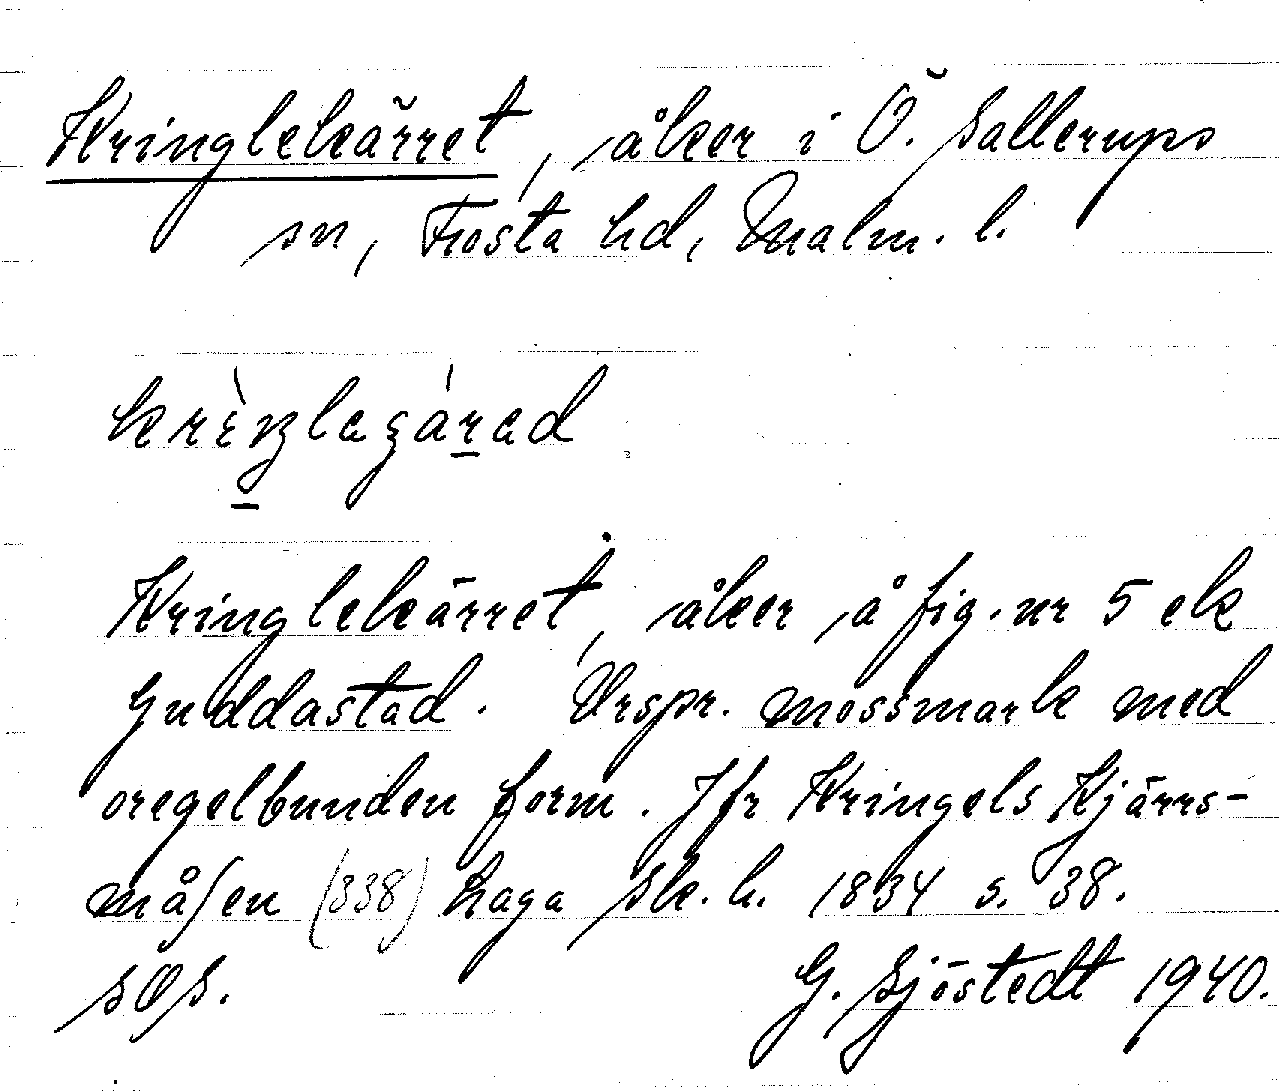 Kringlekärret, åker i Ö. Sallerups
sn, Frosta hd, Malm. l.
Kringlekärret, åker å fig. nr 5 ek
Guddastad. Urspr. mossmark med
oregelbunden form. Jfr Kringels Kjärrs-
måsen (338) haga sk. h. 1834 s. 38.
G. Sjöstedt 1940.